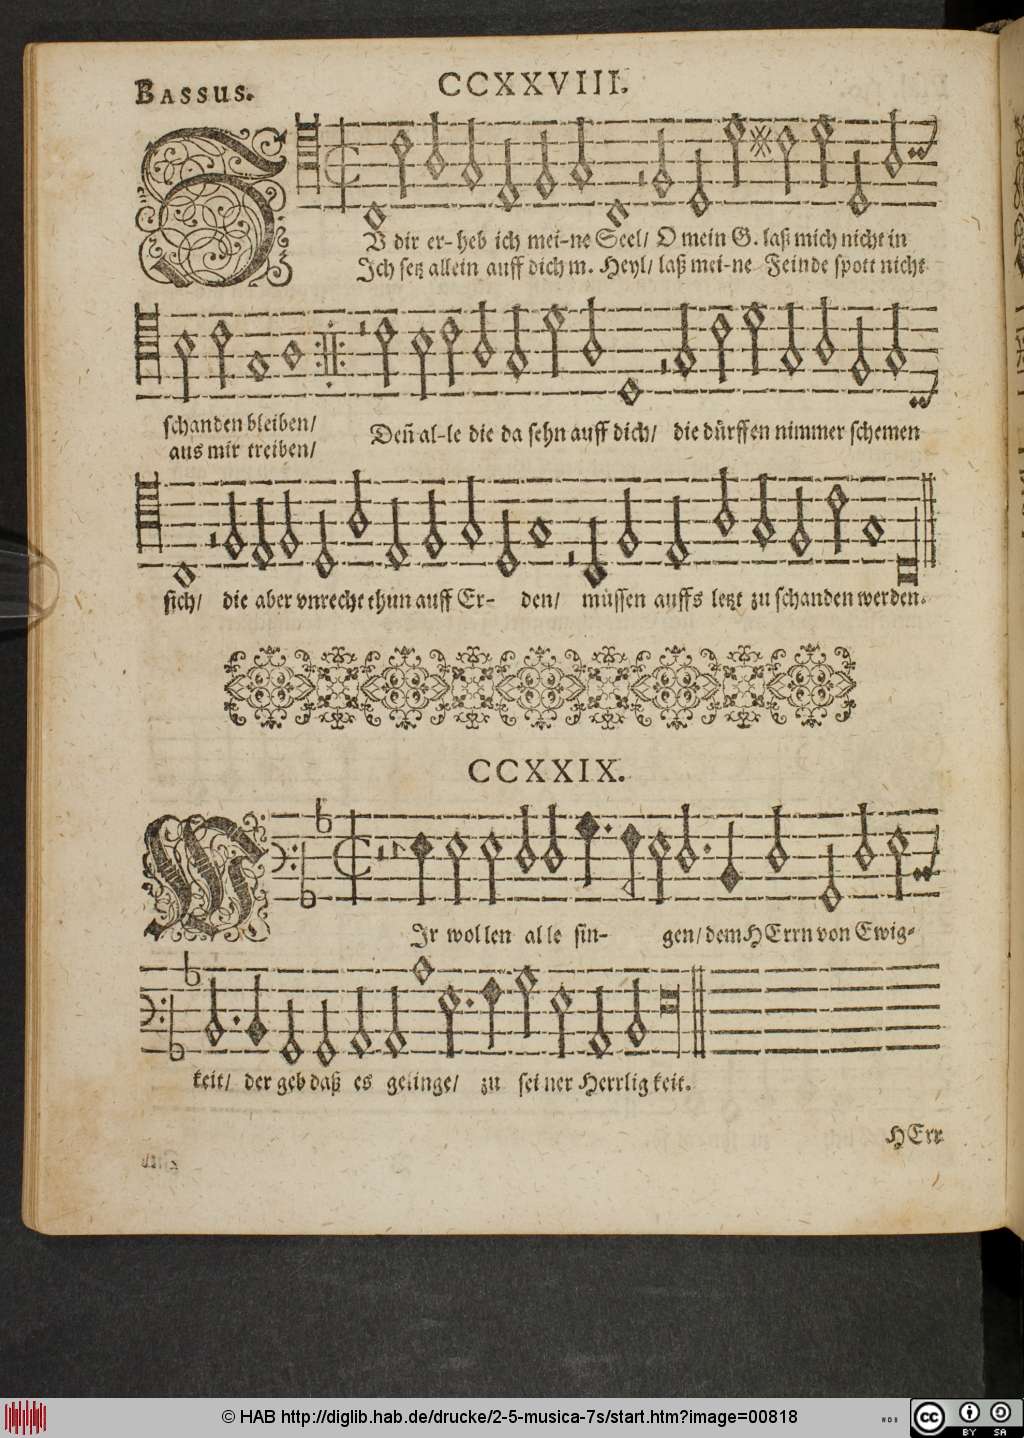 BASSUS.
CCXXVIII.
ZV dir er- heb ich mei-ne Seel/ O mein G. laß mich nicht in
Ich setz allein auff dich m. Heyl/ laß mei-ne Feinde spott nicht
schanden bleiben/
aus mir treiben/
Deñ al-le die da sehn auff dich/ die dürffen nimmer schemen
sich/ die aber vnrecht thun auff Er- den/ müssen auffs letzt zu schanden werden.
CCXXIX.
WIr wollen alle sin- gen/ dem HErrn von Ewig-
keit/ der geb daß es gelinge/ zu seiner Herrligkeit.
HErr
© HAB http://diglib.hab.de/drucke/2-5-musica-7s/start.htm?image=00818
WDB
cc
BY SA